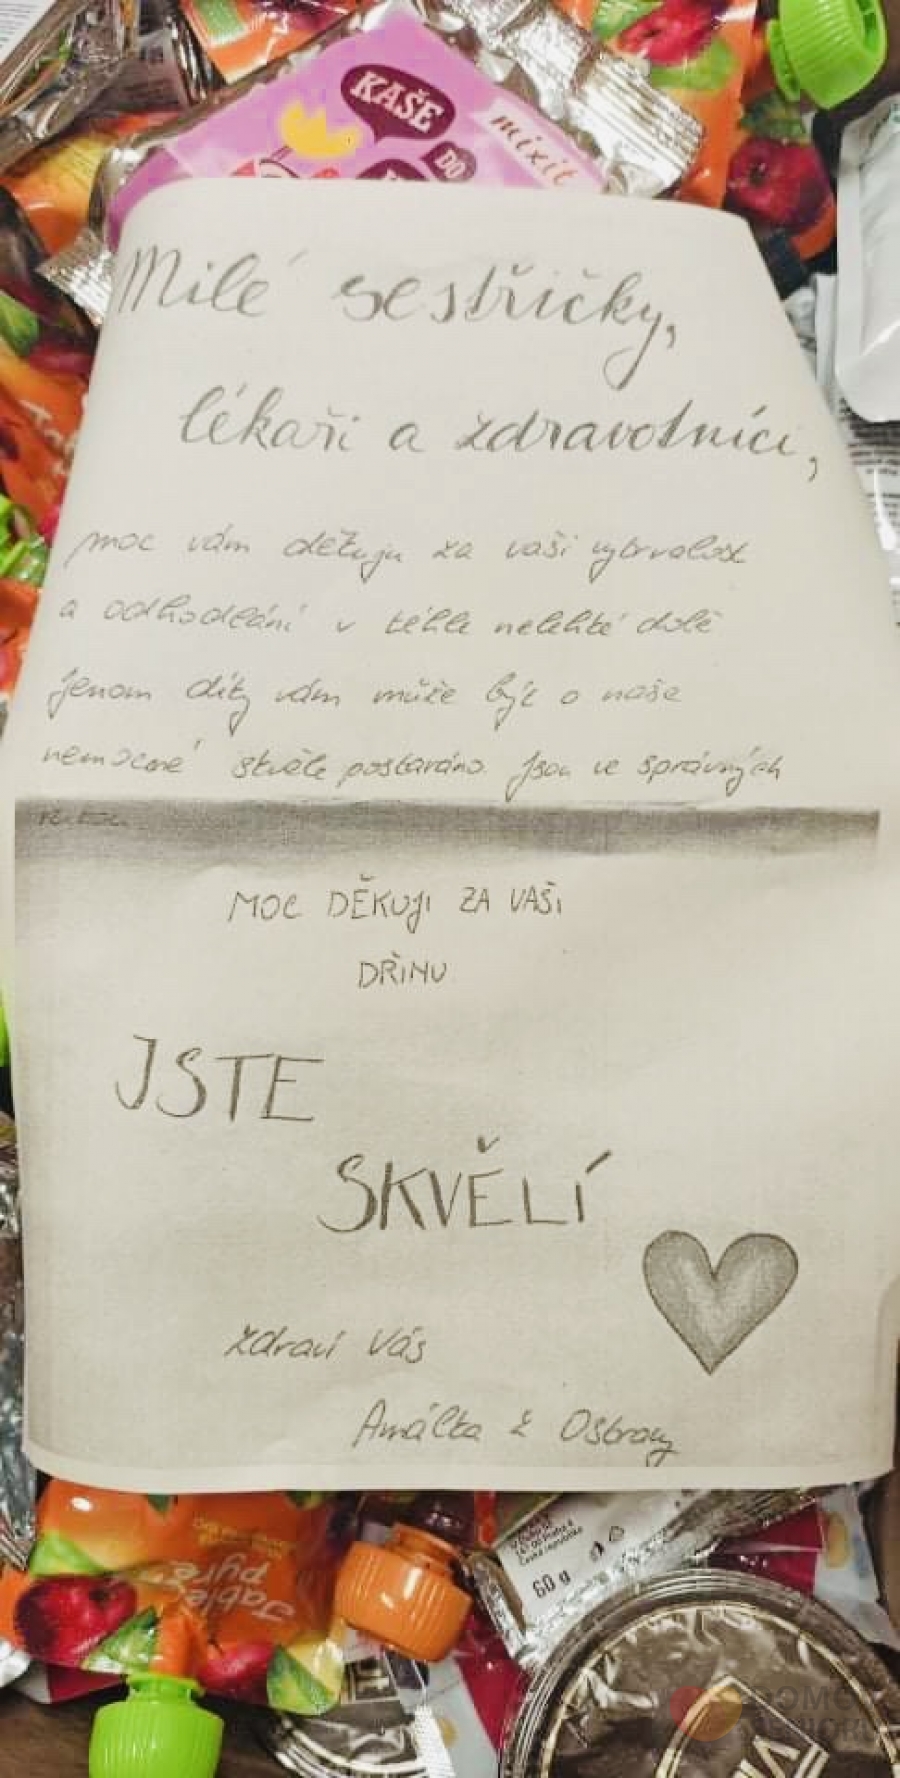 KAŠE
DO
mixit
Milé sestřičky,
lékaři a zdravotníci,
moc vám děkuju za vaši vytrvalost
a odhodlání v téhle nelehké době
jenom díky vám může být o naše
nemocné skvěle postaráno. Jsou ve správných
MOC DĚKUJI ZA VAŠI
DŘINU
JSTE
SKVĚLÍ
zdraví Vás
Amálka z Ostravy
Jable
pyré
60 g